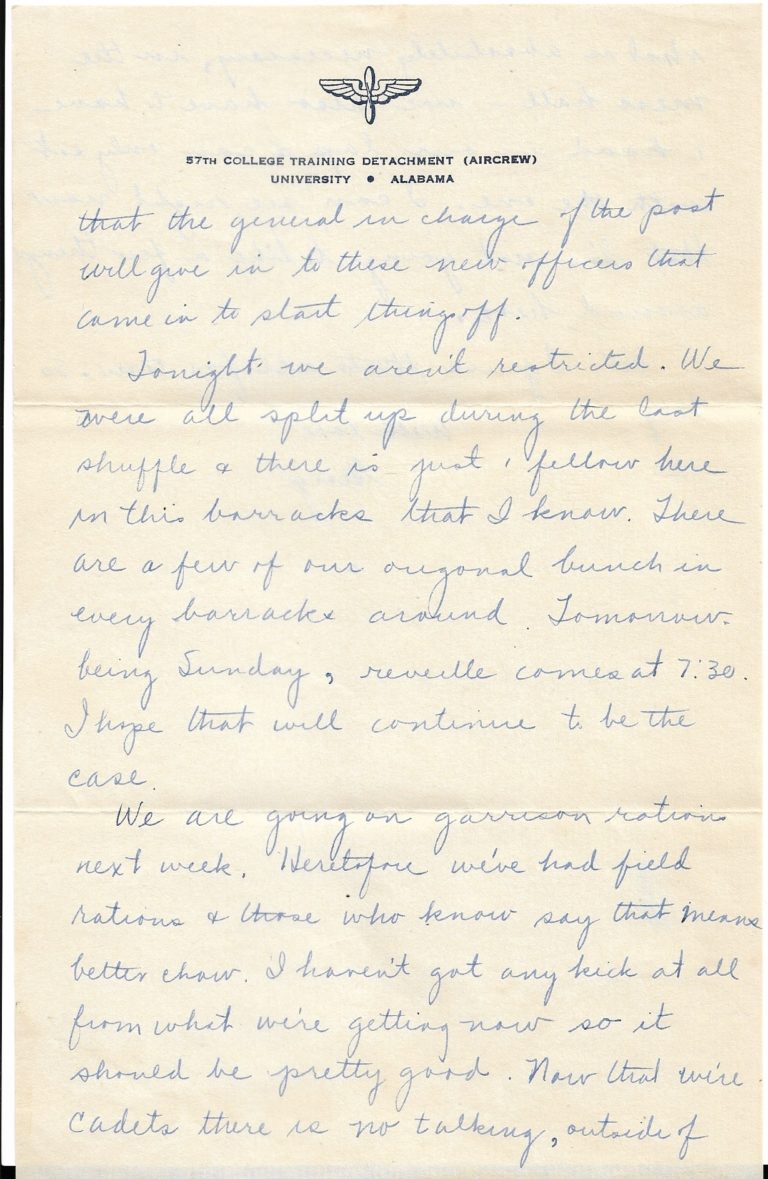 57TH COLLEGE TRAINING DETACHMENT (AIRCREW)
UNIVERSITY • ALABAMA
that the general in charge of the post
will give in to these new officers that
came in to start things off.
Tonight we aren't restricted. We
were all split up during the last
shuffle & there is just 1 fellow here
in this barracks that I know. There
are a few of our origonal bunch in
every barracks around. Tomorrow
being Sunday, reveille comes at 7:30.
I hope that will continue to be the
case.
We are going on garrison rations
next week. Heretofore we've had field
rations & those who know say that means
better chow. I haven't got any kick at all
from what we're getting now so it
should be pretty good. Now that we're
cadets there is no talking, outside of